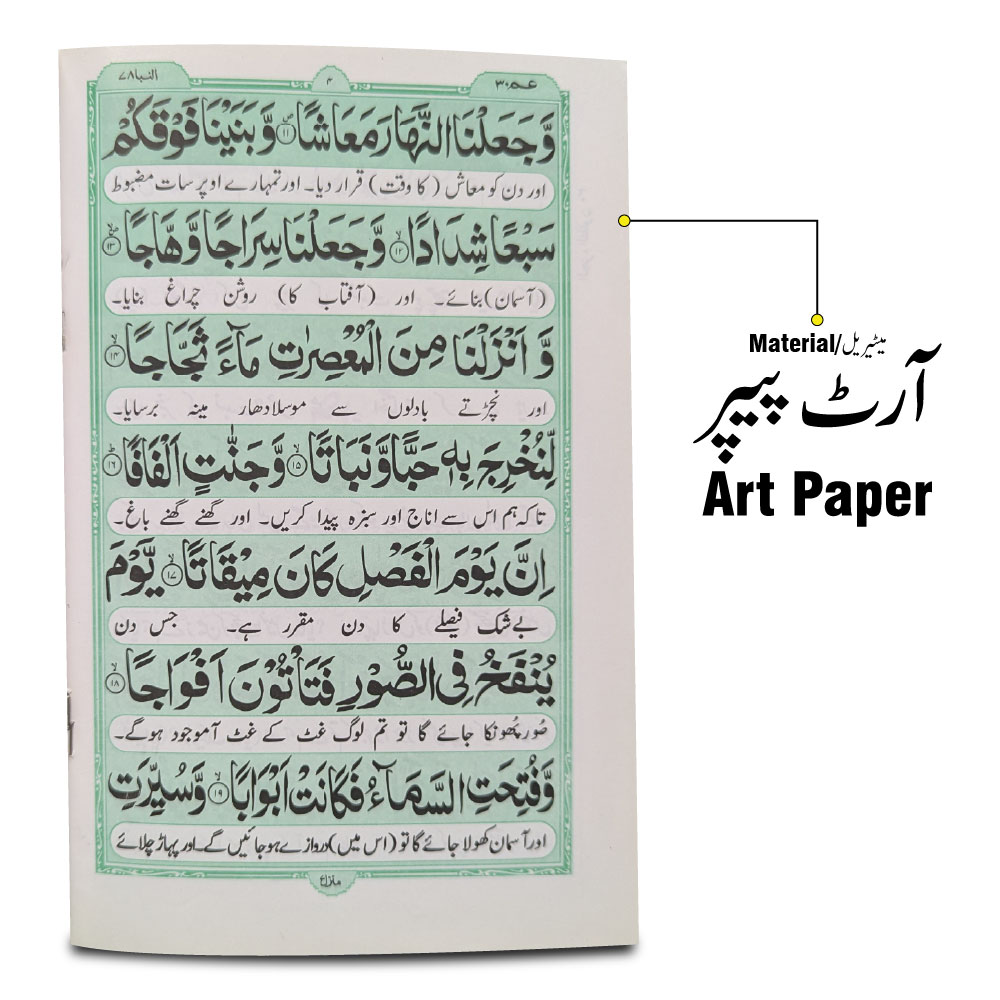 عم۳۰
۴
النبا۷۸
وَّجَعَلْنَا النَّهَارَ مَعَاشًا ۝۱۱ وَّ بَنَيْنَا فَوْقَكُمْ
اور دن کو معاش (کا وقت) قرار دیا۔ اور تمہارے اوپر سات مضبوط
سَبْعًا شِدَادًا ۝۱۲ وَّ جَعَلْنَا سِرَاجًا وَّهَّاجًا ۝۱۳
(آسمان) بنائے۔ اور (آفتاب کا) روشن چراغ بنایا۔
وَّ اَنْزَلْنَا مِنَ الْمُعْصِرٰتِ مَآءً ثَجَّاجًا ۝۱۴
اور نچڑتے بادلوں سے موسلادھار مینہ برسایا۔
لِّنُخْرِجَ بِهٖ حَبًّا وَّ نَبَاتًا ۝۱۵ وَّ جَنّٰتٍ اَلْفَافًا ۝۱۶
تاکہ ہم اس سے اناج اور سبزہ پیدا کریں۔ اور گھنے گھنے باغ۔
اِنَّ يَوْمَ الْفَصْلِ كَانَ مِيْقَاتًا ۝۱۷ يَّوْمَ
بےشک فیصلے کا دن مقرر ہے۔ جس دن
يُنْفَخُ فِى الصُّوْرِ فَتَاْتُوْنَ اَفْوَاجًا ۝۱۸
صور پھونکا جائے گا تو تم لوگ غٹ کے غٹ آموجود ہوگے۔
وَّ فُتِحَتِ السَّمَآءُ فَكَانَتْ اَبْوَابًا ۝۱۹ وَّ سُيِّرَتِ
اور آسمان کھولا جائے گا تو (اس میں) دروازے ہوجائیں گے۔ اور پہاڑ چلائے
Material/میٹیریل
آرٹ پیپر
Art Paper